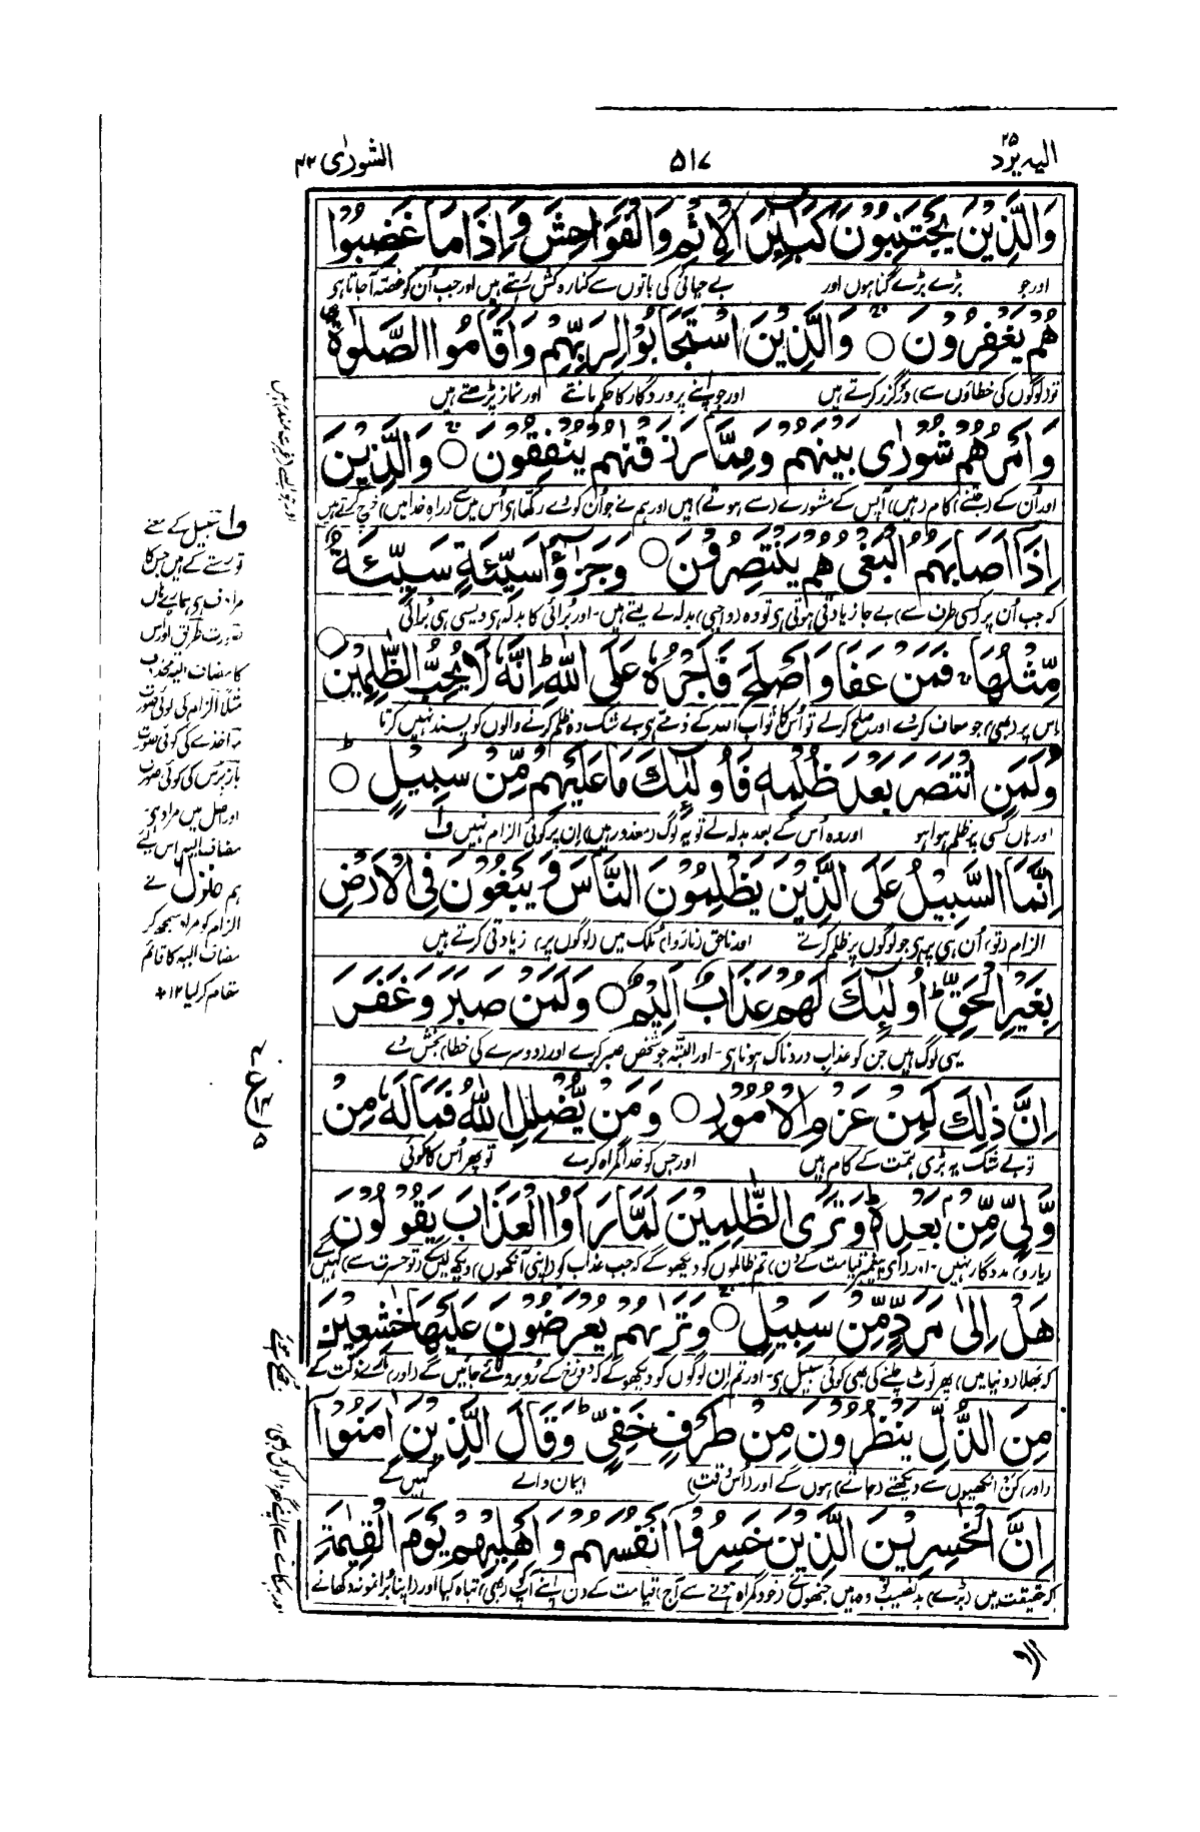 الیہ یرد ۲۵
۵۱۷
الشورٰی ۴۲
وَالَّذِيْنَ يَجْتَنِبُوْنَ كَبٰٓئِرَ الْاِثْمِ وَالْفَوَاحِشَ وَاِذَا مَا غَضِبُوْا
اور جو بڑے بڑے گناہوں اور بے حیائی کی باتوں سے کنارہ کش رہتے ہیں اور جب اُن کو غصہ آجاتا ہو
هُمْ يَغْفِرُوْنَ ○ وَالَّذِيْنَ اسْتَجَابُوْا لِرَبِّهِمْ وَاَقَامُوا الصَّلٰوةَ
تو (لوگوں کی خطاؤں سے) درگزر کرتے ہیں اور جو اپنے پروردگار کا حکم مانتے اور نماز پڑھتے ہیں
وَاَمْرُهُمْ شُوْرٰى بَيْنَهُمْ وَمِمَّا رَزَقْنٰهُمْ يُنْفِقُوْنَ ○ وَالَّذِيْنَ
اور اُن کے (جتنے) کام (ہیں) آپس کے مشورے (سے ہوتے) ہیں اور ہم نے جو اُن کو دے رکھا ہو اُس میں سے (راہِ خدا میں) خرچ کرتے ہیں
اِذَآ اَصَابَهُمُ الْبَغْيُ هُمْ يَنْتَصِرُوْنَ ○ وَجَزٰٓؤُا سَيِّئَةٍ سَيِّئَةٌ
کہ جب اُن پر (کسی طرف سے) بے جا زیادتی ہوتی ہی تو وہ (واجبی) بدلہ لے لیتے ہیں۔ اور بُرائی کا بدلہ ہی ویسی ہی بُرائی
مِّثْلُهَا ۚ فَمَنْ عَفَا وَاَصْلَحَ فَاَجْرُهٗ عَلَى اللّٰهِ ؕ اِنَّهٗ لَا يُحِبُّ الظّٰلِمِيْنَ ○
اس پر (بھی) جو معاف کر دے اور صلح کر لے تو اُس کا ثواب اللہ کے ذمے ہی بے شک وہ ظلم کرنے والوں کو پسند نہیں کرتا
وَلَمَنِ انْتَصَرَ بَعْدَ ظُلْمِهٖ فَاُولٰٓئِكَ مَا عَلَيْهِمْ مِّنْ سَبِيْلٍ ○
اور ہاں کسی پر ظلم ہوا ہو اور وہ اُس کے بعد بدلہ لے تو یہ لوگ (معذور ہیں) اِن پر کوئی الزام نہیں ف۱
اِنَّمَا السَّبِيْلُ عَلَى الَّذِيْنَ يَظْلِمُوْنَ النَّاسَ وَيَبْغُوْنَ فِى الْاَرْضِ
الزام (تو) اُن ہی پر ہی جو لوگوں پر ظلم کرتے اور ناحق (ناروا) مُلک میں (لوگوں پر) زیادتی کرتے ہیں
بِغَيْرِ الْحَقِّ ؕ اُولٰٓئِكَ لَهُمْ عَذَابٌ اَلِيْمٌ ○ وَلَمَنْ صَبَرَ وَغَفَرَ
یہی لوگ ہیں جن کو عذابِ دردناک ہونا ہی۔ اور البتہ جو شخص صبر کرے اور (دوسرے کی خطا) بخش دے
اِنَّ ذٰلِكَ لَمِنْ عَزْمِ الْاُمُوْرِ ○ وَمَنْ يُّضْلِلِ اللّٰهُ فَمَا لَهٗ مِنْ
تو بے شک یہ بڑی ہمت کے کام ہیں اور جس کو خدا گمراہ کرے تو پھر اُس کا کوئی
وَّلِيٍّ مِّنْۢ بَعْدِهٖ ؕ وَتَرَى الظّٰلِمِيْنَ لَمَّا رَاَوُا الْعَذَابَ يَقُوْلُوْنَ
(یار و) مددگار نہیں۔ اور (ای پیغمبر قیامت کے دن) تم ظالموں کو دیکھو گے کہ جب عذاب کو (اپنی آنکھوں) دیکھ لیں گے (تو حسرت سے) کہیں گے
هَلْ اِلٰى مَرَدٍّ مِّنْ سَبِيْلٍ ○ وَتَرٰىهُمْ يُعْرَضُوْنَ عَلَيْهَا خٰشِعِيْنَ
کہ بھلا (دنیا میں) پھر لوٹ چلنے کی بھی کوئی سبیل ہی۔ اور تم اِن لوگوں کو دیکھو گے کہ دوزخ کے رُو برو لائے جائیں گے (اور) مارے ذلت کے
مِنَ الذُّلِّ يَنْظُرُوْنَ مِنْ طَرْفٍ خَفِيٍّ ؕ وَقَالَ الَّذِيْنَ اٰمَنُوْٓا
(اور) کن انکھیوں سے دیکھتے (جاتے) ہوں گے اور (اُس وقت) ایمان والے کہیں گے
اِنَّ الْخٰسِرِيْنَ الَّذِيْنَ خَسِرُوْٓا اَنْفُسَهُمْ وَاَهْلِيْهِمْ يَوْمَ الْقِيٰمَةِ
کہ حقیقت میں (بڑے) بدنصیب وہ ہیں جنھوں نے (خود گمراہ ہونے سے آج) قیامت کے دن اپنے آپ کو (بھی) تباہ کیا اور (اپنا بُرا نمونہ دکھا کے
ف۱ سبیل کے معنے
تو رستے کے ہیں جس کا
مرادف ہی ہمارے ہاں
صورت طریق اور اس
کا مضاف الیہ محذوف
مثلاً الزام کی کوئی صورت
مواخذے کی کوئی صورت
باز پرس کی کوئی صورت
اور اصل میں مراد ہی
مضاف الیہ اس لئے
ہم نے
الزام کو مراد سمجھ کر
مضاف الیہ کا قائم
مقام کر لیا ۱۲